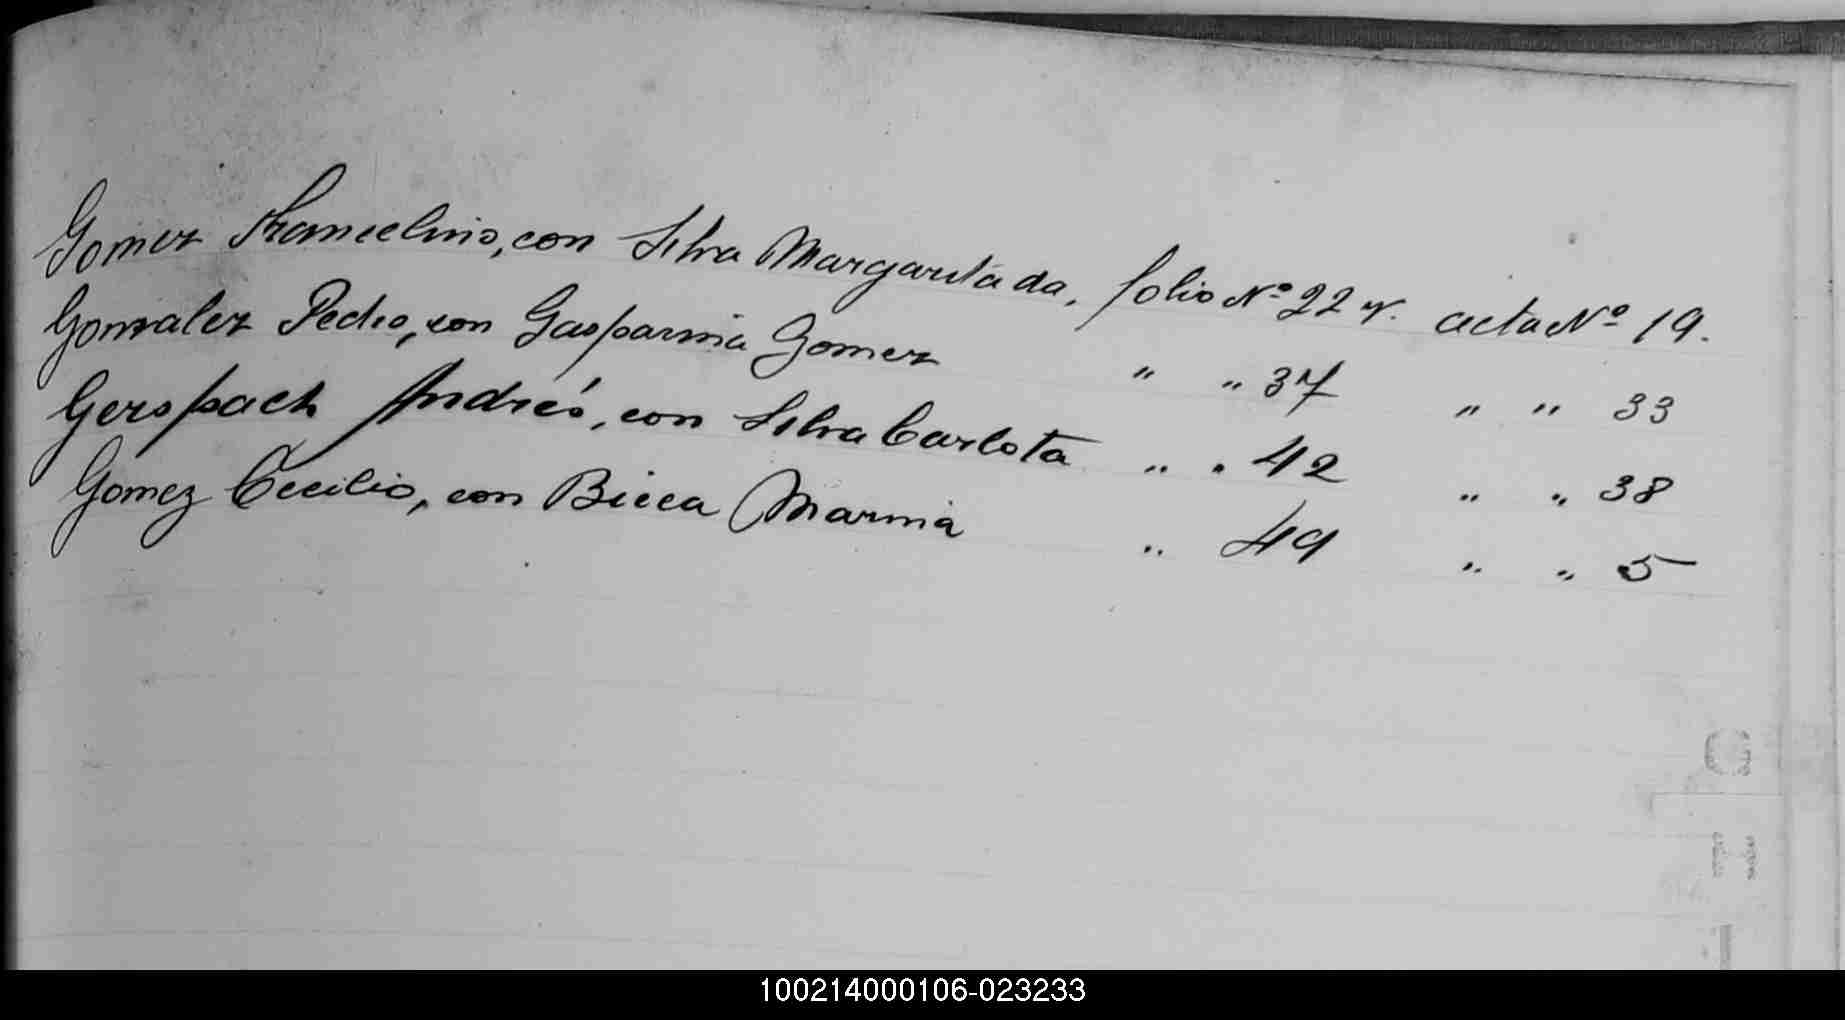 Gomez Francelino, con Silva Margarita da, folio Nº 22 v. acta Nº 19.
Gonzalez Pedro, con Gasparina Gomez " " 37 " " 33
Gerspach Andrés, con Silva Carlota " " 42 " " 38
Gomez Cecilio, con Bicca Marina " 49 " " 5
100214000106-023233